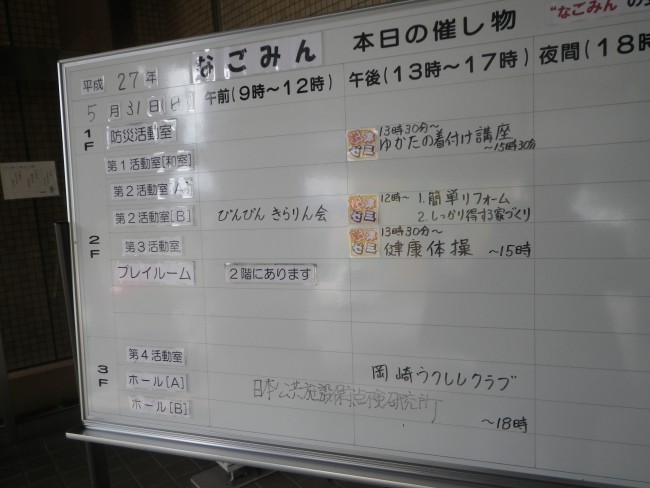 なごみん 本日の催し物 "なごみん"の
平成 27年
5月31日(日) 午前(9時～12時) 午後(13時～17時) 夜間(18時
1F
防災活動室 13時30分～ ゆかたの着付け講座 ～15時30分
第1活動室[和室]
第2活動室[A]
第2活動室[B] ぴんぴん きらりん会 ゼミ 12時～ 1.簡単リフォーム
2.しっかり得する家づくり
2F
第3活動室 ゼミ 13時30分～ 健康体操 ～15時
プレイルーム 2階にあります
3F
第4活動室
ホール[A] 岡崎ウクレレクラブ
ホール[B] ～18時